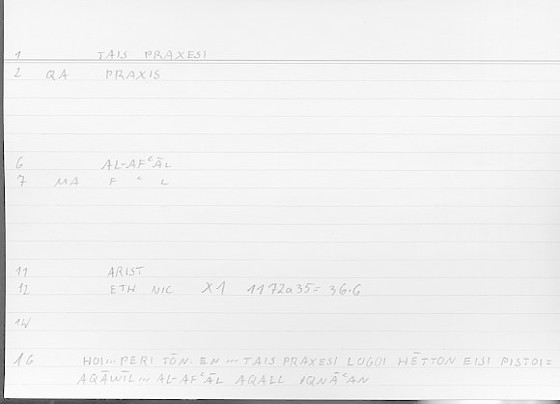 1 TAIS PRAXESI
2 QA PRAXIS
6 AL-AFʿĀL
7 MA F ʿ L
11 ARIST
12 ETH NIC X1 1172a35 = 36.6
16 HOI... PERI TŌN. EN ... TAIS PRAXESI LOGOI HĒTTON EISI PISTOI =
AQĀWĪL ... AL-AFʿĀL AQALL IQNĀʿAN